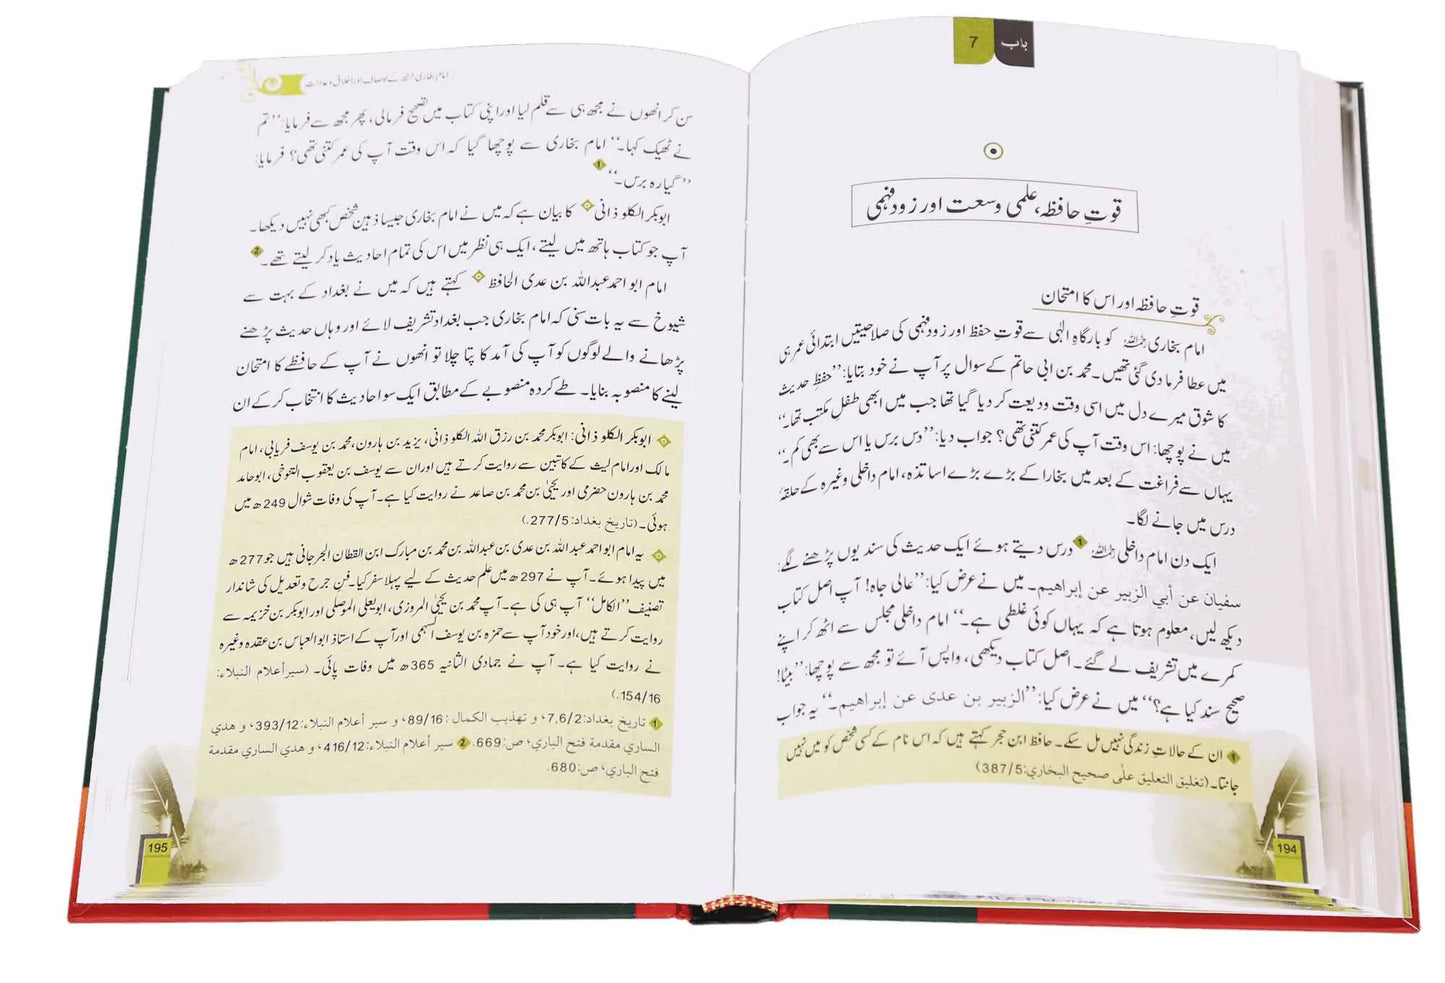 باب 7
قوتِ حافظہ، علمی وسعت اور زود فہمی
قوتِ حافظہ اور اس کا امتحان
امام بخاری رحمہ اللہ کو بارگاہِ الٰہی سے قوتِ حفظ اور زود فہمی کی صلاحیتیں ابتدائی عمر ہی
میں عطا فرما دی گئی تھیں۔ محمد بن ابی حاتم کے سوال پر آپ نے خود بتایا: ’’حفظ حدیث
کا شوق میرے دل میں اسی وقت ودیعت کر دیا گیا تھا جب میں ابھی طفلِ مکتب تھا۔‘‘
میں نے پوچھا: اس وقت آپ کی عمر کتنی تھی؟ جواب دیا: ’’دس برس یا اس سے بھی کم۔‘‘
یہاں سے فراغت کے بعد میں بخارا کے بڑے بڑے اساتذہ، امام داخلی وغیرہ کے حلقۂ
درس میں جانے لگا۔
ایک دن امام داخلی رحمہ اللہ 1 درس دیتے ہوئے ایک حدیث کی سند یوں پڑھنے لگے:
سفيان عن أبي الزبير عن إبراهيم۔ میں نے عرض کیا: ’’عالی جاہ! آپ اصل کتاب
دیکھ لیں، معلوم ہوتا ہے کہ یہاں کوئی غلطی ہے۔‘‘ امام داخلی مجلس سے اٹھ کر اپنے
کمرے میں تشریف لے گئے۔ اصل کتاب دیکھی، واپس آئے تو مجھ سے پوچھا: ’’بیٹا!
صحیح سند کیا ہے؟‘‘ میں نے عرض کیا: ’’الزبير بن عدي عن إبراهيم۔‘‘ یہ جواب
1 ان کے حالات زندگی نہیں مل سکے۔ حافظ ابن حجر کہتے ہیں کہ اس نام کے کسی شخص کو میں نہیں
جانتا۔ (تغليق التعليق على صحيح البخاري: 387/5)
194
امام بخاری رحمہ اللہ کے اوصاف اور اخلاق و عادات
سن کر انھوں نے مجھ ہی سے قلم لیا اور اپنی کتاب میں تصحیح فرمالی، پھر مجھ سے فرمایا: ’’تم
نے ٹھیک کہا۔‘‘ امام بخاری سے پوچھا گیا کہ اس وقت آپ کی عمر کتنی تھی؟ فرمایا:
’’گیارہ برس۔‘‘ 1
ابوبکر الکلوذانی کا بیان ہے کہ میں نے امام بخاری جیسا ذہین شخص کبھی نہیں دیکھا۔
آپ جو کتاب ہاتھ میں لیتے، ایک ہی نظر میں اس کی تمام احادیث یاد کر لیتے تھے۔ 2
امام ابو احمد عبداللہ بن عدی الحافظ کہتے ہیں کہ میں نے بغداد کے بہت سے
شیوخ سے یہ بات سنی کہ امام بخاری جب بغداد تشریف لائے اور وہاں حدیث پڑھنے
پڑھانے والے لوگوں کو آپ کی آمد کا پتا چلا تو انھوں نے آپ کے حافظے کا امتحان
لینے کا منصوبہ بنایا۔ طے کردہ منصوبے کے مطابق ایک سو احادیث کا انتخاب کر کے ان
ابوبکر الکلوذانی: ابوبکر محمد بن رزق اللہ الکلوذانی، یزید بن ہارون، محمد بن یوسف فریابی، امام
مالک اور امام لیث کے کاتبین سے روایت کرتے ہیں اور ان سے یوسف بن یعقوب التنوخی، ابو حامد
محمد بن ہارون حضرمی اور یحییٰ بن محمد بن صاعد نے روایت کیا ہے۔ آپ کی وفات شوال 249ھ میں
ہوئی۔ (تاریخ بغداد: 277/5.)
یہ امام ابو احمد عبداللہ بن عدی بن عبداللہ بن محمد بن مبارک ابن القطان الجرجانی ہیں جو 277ھ
میں پیدا ہوئے۔ آپ نے 297ھ میں علم حدیث کے لیے پہلا سفر کیا۔ فن جرح و تعدیل کی شاندار
تصنیف ’’الکامل‘‘ آپ ہی کی ہے۔ آپ محمد بن یحییٰ المروزی، ابو یعلی الموصلی اور ابوبکر بن خزیمہ سے
روایت کرتے ہیں، اور خود آپ سے حمزہ بن یوسف السہمی اور آپ کے استاذ ابو العباس بن عقدہ وغیرہ
نے روایت کیا ہے۔ آپ نے جمادی الثانیہ 365ھ میں وفات پائی۔ (سير أعلام النبلاء:
154/16.)
1 تاريخ بغداد: 7,6/2، و تهذيب الكمال: 89/16، و سير أعلام النبلاء: 393/12، و هدي
الساري مقدمة فتح الباري، ص: 669. 2 سير أعلام النبلاء: 416/12، و هدي الساري مقدمة
فتح الباري، ص: 680.
195